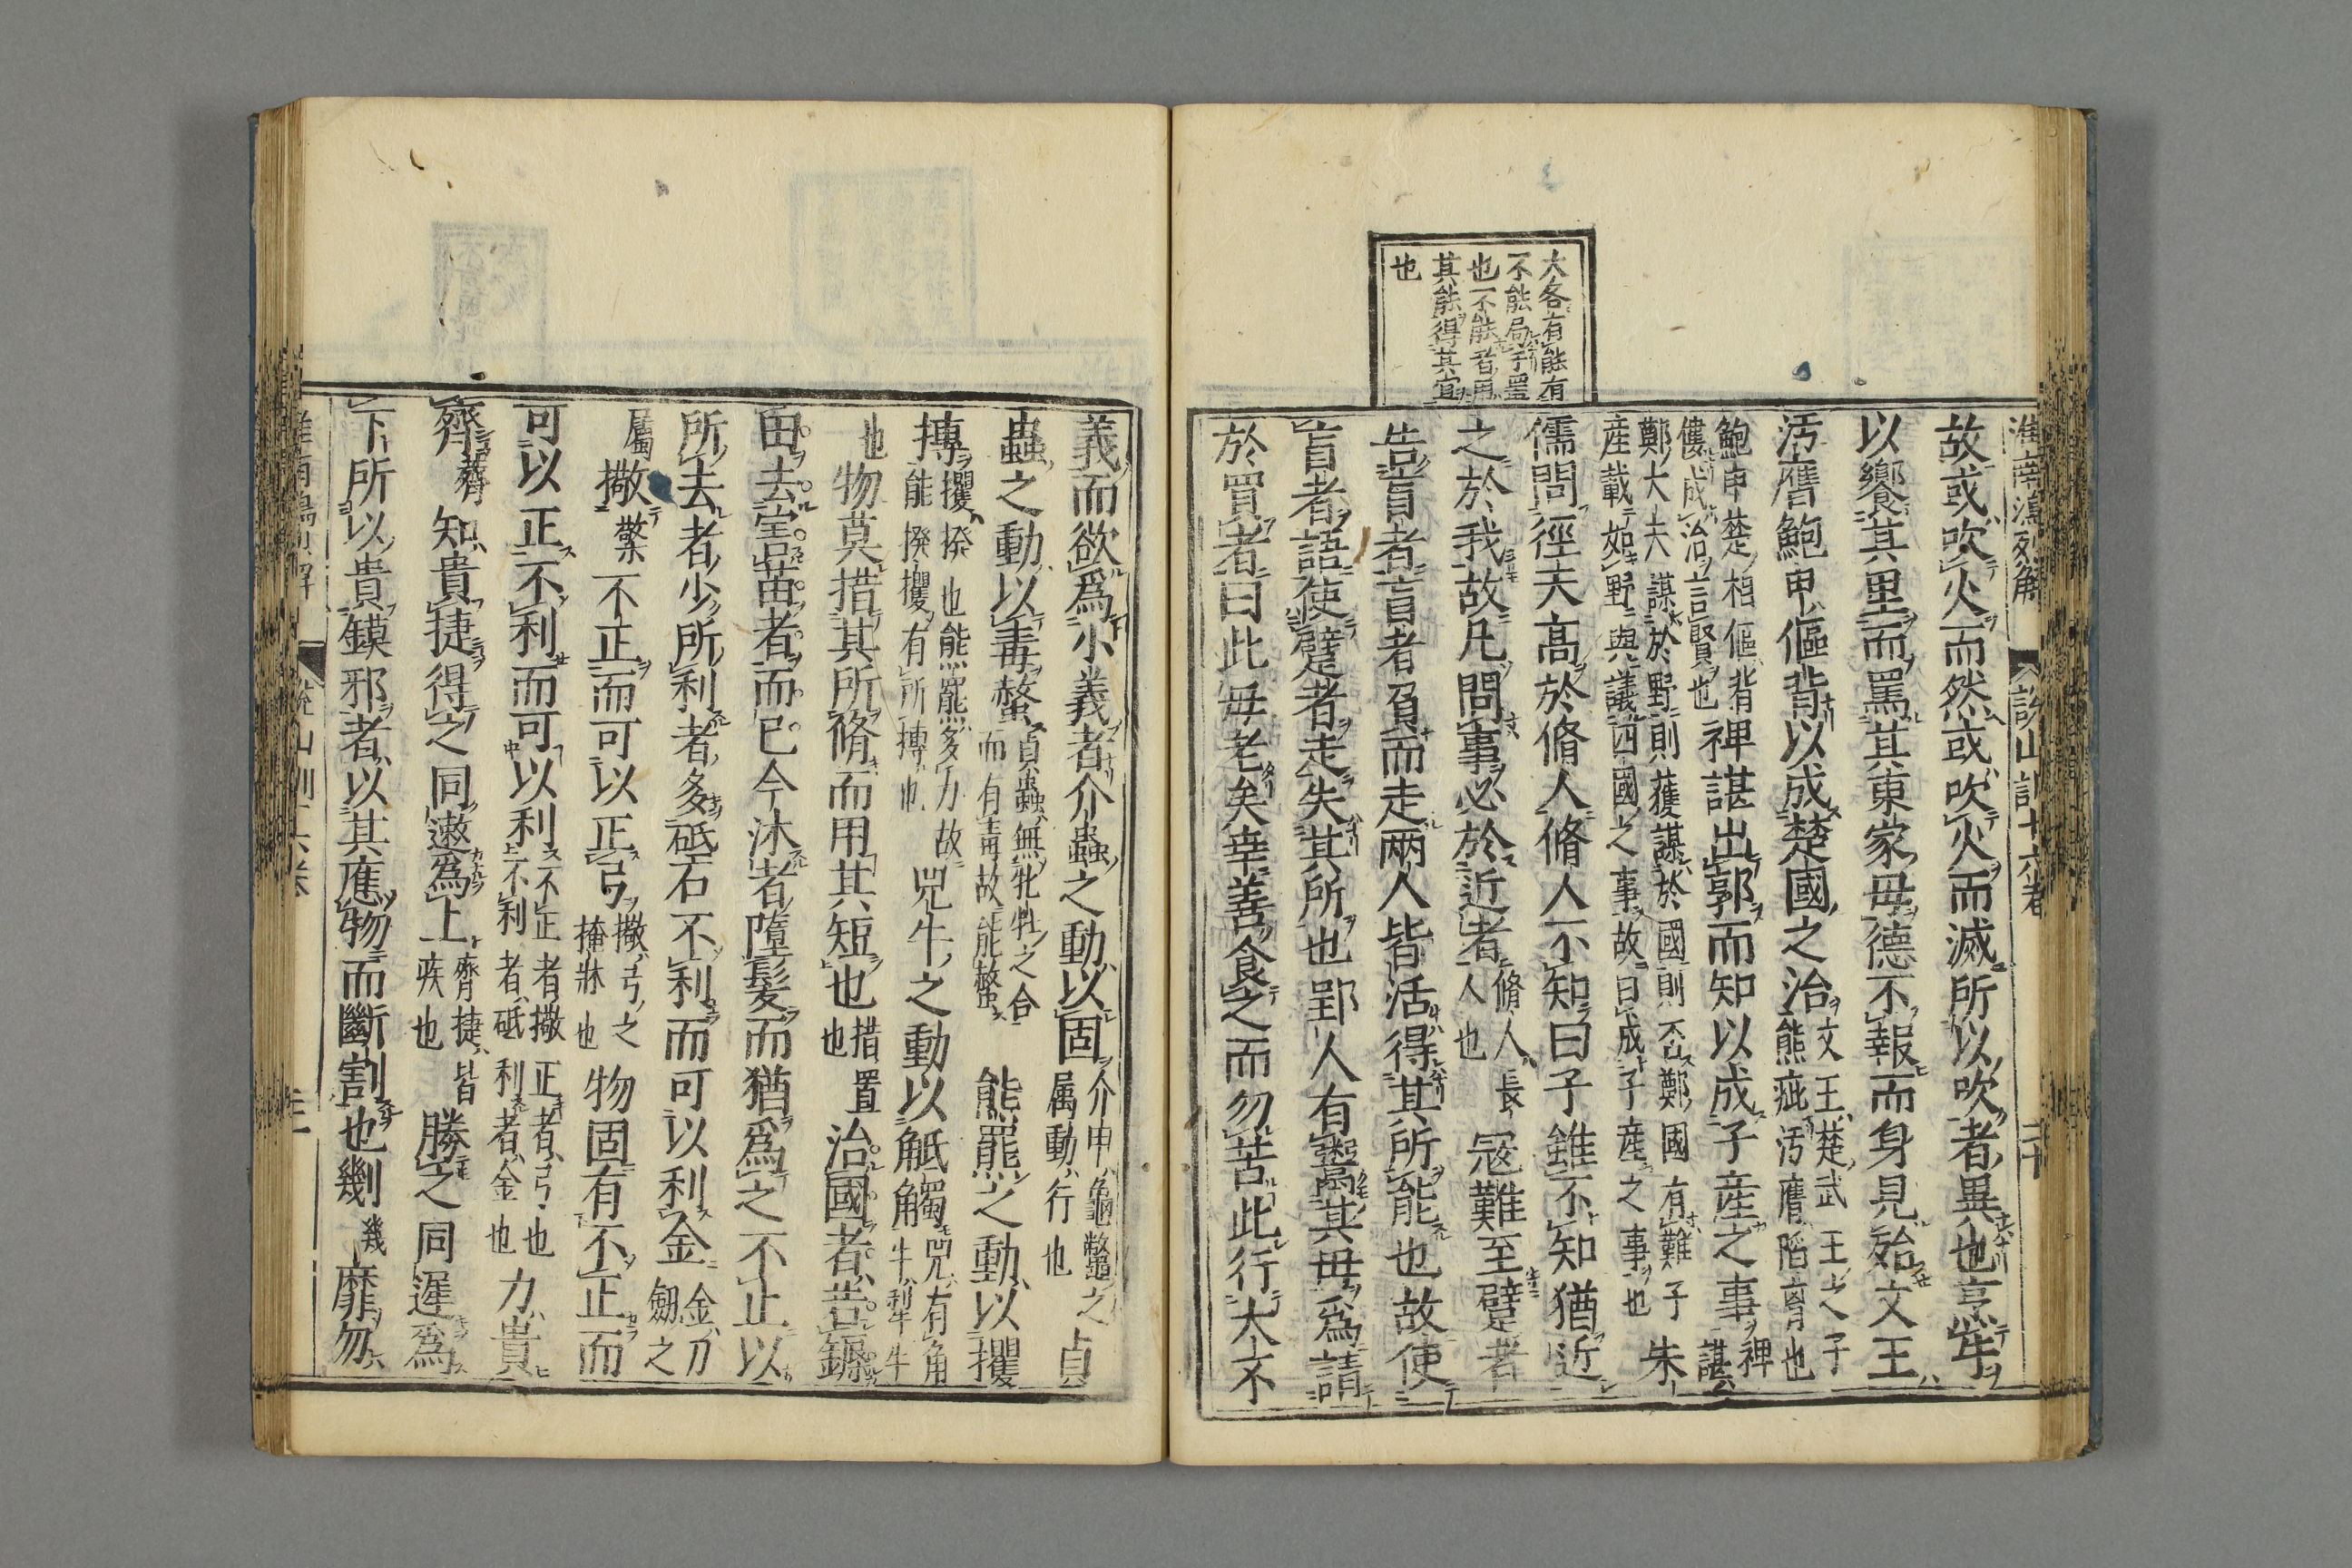 淮南鴻烈解
說山訓十六卷
大各有能有
不能局于置
也不能者再
其能得其宜
也
故或吹火而然或吹火而滅所以吹者異也烹牛
以饗其里而罵其東家毋德不報而身見殆文王
汚膺鮑申傴背以成楚國之治文王楚武王之子熊疵汚膺陷胷也
鮑申楚相傴背僂成治言賢也裨諶出郭而知以成子產之事裨諶
鄭大夫謀於野則獲謀於國則否鄭國有難子產載如野與議四國之事故曰成子產之事也朱
儒問徑天高於脩人脩人不知曰子雖不知猶近
之於我故凡問事必於近者脩人長人也寇難至躄者
告盲者盲者負而走兩人皆活得其所能也故使
盲者語使躄者走失其所也郢人有鬻其毋爲請
於買者曰此毋老矣幸善食之而勿苦此行大不
義而欲爲小義者介蟲之動以固介甲龜鼈之屬動行也貞
蟲之動以毒螫貞蟲無牝牡之合而有毒故能螫熊羆之動以攫
搏攫搽也熊羆多力故能搽攫有所搏也兕牛之動以觝觸兕有角牛犁牛
也物莫措其所脩而用其短也措置也治國者若鎒
田去害苗者而已今沐者墮髮而猶爲之不止以
所去者少所利者多砥石不利而可以利金金刀劒之
屬㯳檠不正而可以正弓㯳弓之掩牀也物固有不正而
可以正不利而可以利不正者㯳正者弓也不利者砥利者金也力貴
齊薺知貴捷得之同遬爲上齊捷皆疾也勝之同遲爲
下所以貴鏌邪者以其應物而斷割也劙幾靡勿
淮南鴻烈解
說山訓十六卷